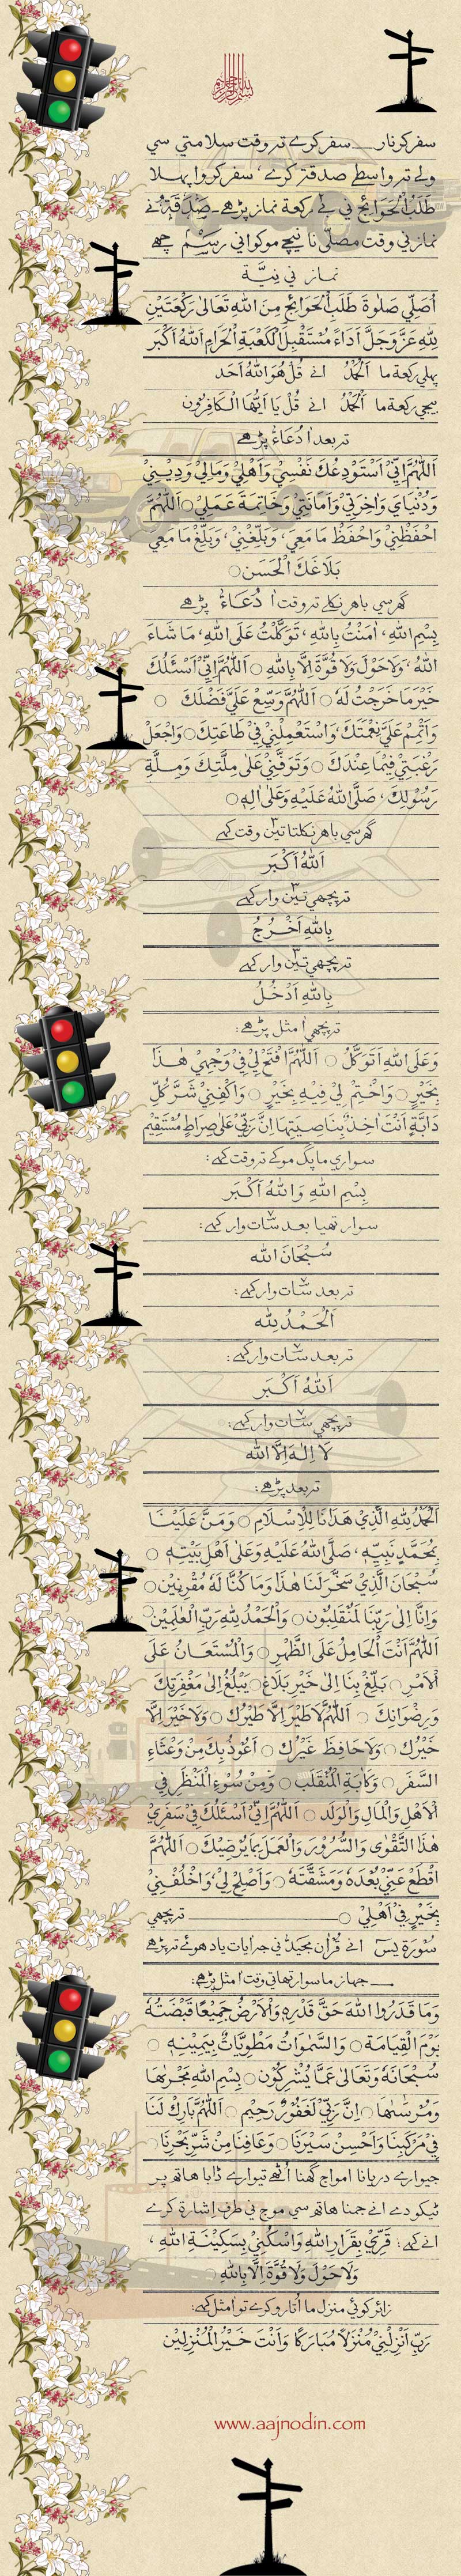 سفر كرنار ـــ سفر كرے تہ وقت سلامتي سي
ولے تہ واسطے صدقة كرے، سفر كروا پہلا
طَلَبُ الْحَوَائِجْ ني بے ركعة نماز پڑھے۔ صَدَقَةْ نے
نماز ني وقت مصلّى نا نيچے موكواني رسم چھے
نماز ني نِيَّة
اُصَلِّي صَلٰوةَ طَلَبِ الْحَوَائِجِ مِنَ اللهِ تَعَالٰى رَكْعَتَيْنِ
لِلّٰهِ عَزَّ وَجَلَّ اَدَاءً مُسْتَقْبِلَ الْكَعْبَةِ الْحَرَامِ اَللهُ اَكْبَر
پہلي ركعة ما اَلْحَمْدُ انے قُلْ هُوَ اللهُ اَحَد
بيجي ركعة ما اَلْحَمْدُ انے قُلْ يَا اَيُّهَا الْكَافِرُون
تہ بعد اٰ دُعَاءْ پڑھے
اَللّٰهُمَّ اِنِّيْ اَسْتَوْدِعُكَ نَفْسِيْ وَاَهْلِيْ وَمَالِيْ وَدِيْنِيْ
وَدُنْيَايَ وَاٰخِرَتِيْ وَاَمَانَتِيْ وَخَاتِمَةَ عَمَلِيْ ○ اَللّٰهُمَّ
احْفَظْنِيْ وَاحْفَظْ مَا مَعِيَ، وَبَلِّغْنِيْ، وَبَلِّغْ مَا مَعِيَ
بَلَاغَكَ الْحَسَن ○
گھر سي باهر نكلے تہ وقت اٰ دُعَاءْ پڑھے
بِسْمِ اللهِ، اٰمَنْتُ بِاللهِ، تَوَكَّلْتُ عَلَى اللهِ، مَا شَاءَ
اللهُ، وَلَا حَوْلَ وَلَا قُوَّةَ اِلَّا بِاللهِ ○ اَللّٰهُمَّ اِنِّيْ اَسْئَلُكَ
خَيْرَ مَا خَرَجْتُ لَهُ ○ اَللّٰهُمَّ وَسِّعْ عَلَيَّ فَضْلَكَ ○
وَاَتْمِمْ عَلَيَّ نِعْمَتَكَ، وَاسْتَعْمِلْنِيْ فِيْ طَاعَتِكَ ○ وَاجْعَلْ
رَغْبَتِيْ فِيْمَا عِنْدَكَ ○ وَتَوَفَّنِيْ عَلٰى مِلَّتِكَ وَمِلَّةِ
رَسُوْلِكَ، صَلَّى اللهُ عَلَيْهِ وَعَلٰى اٰلِهِ ○
گھر سي باهر نكلتا تين وقت كہے
اَللهُ اَكْبَر
تہ پچھي تين وار كہے
بِاللهِ اَخْرُجُ
تہ پچھي تين وار كہے
بِاللهِ اَدْخُلُ
تہ پچھي اٰ مثل پڑھے:
وَعَلَى اللهِ اَتَوَكَّلُ ○ اَللّٰهُمَّ افْتَحْ لِيْ فِيْ وَجْهِيْ هٰذَا
بِخَيْرٍ ○ وَاخْتِمْ لِيْ فِيْهِ بِخَيْرٍ ○ وَاكْفِنِيْ شَرَّ كُلِّ
دَابَّةٍ اَنْتَ اٰخِذٌ بِنَاصِيَتِهَا اِنَّ رَبِّيْ عَلٰى صِرَاطٍ مُسْتَقِيْم
سواري ما پگ موكے تہ وقت كہے:
بِسْمِ اللهِ وَاللهُ اَكْبَر
سوار تھيا بعد سات وار كہے:
سُبْحَانَ الله
تہ بعد سات وار كہے:
اَلْحَمْدُ لِله
تہ بعد سات وار كہے:
اَللهُ اَكْبَر
تہ پچھي سات وار كہے:
لَا اِلٰهَ اِلَّا الله
تہ بعد پڑھے:
اَلْحَمْدُ لِلّٰهِ الَّذِيْ هَدَانَا لِلْاِسْلَامِ ○ وَمَنَّ عَلَيْنَا
بِمُحَمَّدٍ نَبِيِّهِ، صَلَّى اللهُ عَلَيْهِ وَعَلٰى اَهْلِ بَيْتِهِ ○
سُبْحَانَ الَّذِيْ سَخَّرَ لَنَا هٰذَا وَمَا كُنَّا لَهُ مُقْرِنِيْنَ ○
وَاِنَّا اِلٰى رَبِّنَا لَمُنْقَلِبُوْنَ ○ وَالْحَمْدُ لِلّٰهِ رَبِّ الْعٰلَمِيْنَ
اَللّٰهُمَّ اَنْتَ الْحَامِلُ عَلَى الظَّهْرِ ○ وَالْمُسْتَعَانُ عَلَى
الْاَمْرِ ○ بَلِّغْ بِنَا اِلٰى خَيْرِ بَلَاغٍ ○ يَبْلُغُ اِلٰى مَغْفِرَتِكَ
وَرِضْوَانِكَ ○ اَللّٰهُمَّ لَا طَيْرَ اِلَّا طَيْرُكَ ○ وَلَا خَيْرَ اِلَّا
خَيْرُكَ ○ وَلَا حَافِظَ غَيْرُكَ ○ اَعُوْذُ بِكَ مِنْ وَعْثَاءِ
السَّفَرِ ○ وَكَاٰبَةِ الْمُنْقَلَبِ ○ وَمِنْ سُوْءِ الْمَنْظَرِ فِي
الْاَهْلِ وَالْمَالِ وَالْوَلَدِ ○ اَللّٰهُمَّ اِنِّيْ اَسْئَلُكَ فِيْ سَفَرِيْ
هٰذَا التَّقْوٰى وَالسُّرُوْرَ وَالْعَمَلَ بِمَا يُرْضِيْكَ ○ اَللّٰهُمَّ
اقْطَعْ عَنِّيْ بُعْدَهُ وَمَشَقَّتَهُ ○ وَاَصْلِحْ لِيْ، وَاخْلُفْنِيْ
بِخَيْرٍ فِيْ اَهْلِيْ ○ ــــــــــ تہ پچھي
سُوْرَة يٰسۤ انے قُرْاٰن مَجِيْد ني جہ اٰيات ياد هوئے تہ پڑھے
ـــ جہاز ما سوار تھاتي وقت اٰ مثل پڑھے:
وَمَا قَدَرُوا اللهَ حَقَّ قَدْرِهِ وَالْاَرْضُ جَمِيْعًا قَبْضَتُهُ
يَوْمَ الْقِيَامَة ○ وَالسَّمٰوَاتُ مَطْوِيَّاتٌ بِيَمِيْنِهِ ○
سُبْحَانَهُ وَتَعَالٰى عَمَّا يُشْرِكُوْن ○ بِسْمِ اللهِ مَجْرٰىهَا
وَمُرْسٰىهَا ○ اِنَّ رَبِّيْ لَغَفُوْرٌ رَحِيْم ○ اَللّٰهُمَّ بَارِكْ لَنَا
فِيْ مَرْكَبِنَا وَاَحْسِنْ سَيْرَنَا ○ وَعَافِنَا مِنْ شَرِّ بَحْرِنَا ○
جيوارے دريانا امواج گھنا اُٹھے تيوارے ڈابا هاتھ پر
ٹيكو دے انے جمنا هاتھ سي موج ني طرف اشارة كرے
انے كہے: قَرِّيْ بِقَرَارِ اللهِ وَاسْكُنِيْ بِسَكِيْنَةِ اللهِ،
وَلَا حَوْلَ وَلَا قُوَّةَ اِلَّا بِاللهِ ○
زائر كوئي منزل ما اُتارو كرے تو اٰ مثل كہے:
رَبِّ اَنْزِلْنِيْ مُنْزَلًا مُبَارَكًا وَاَنْتَ خَيْرُ الْمُنْزِلِيْن
www.aajnodin.com